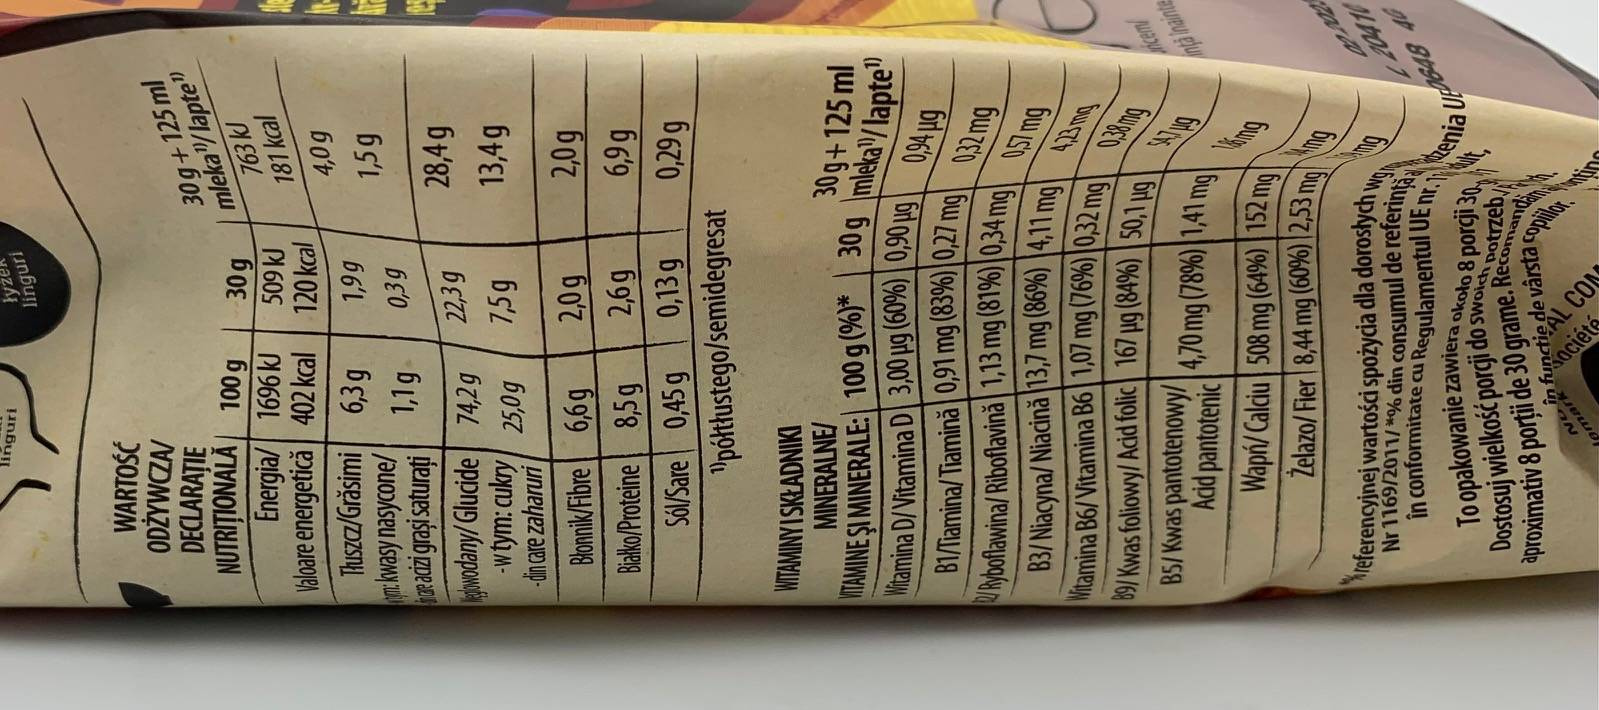 łyżek
linguri
linguri
WARTOŚĆ
ODŻYWCZA/
DECLARAȚIE
NUTRIȚIONALĂ 100 g 30 g 30 g + 125 ml mleka¹⁾/ lapte¹⁾
Energia/ 1696 kJ 509 kJ 763 kJ
Valoare energetică 402 kcal 120 kcal 181 kcal
Tłuszcz/Grăsimi 6,3 g 1,9 g 4,0 g
kwasy nasycone/ 1,1 g 0,3 g 1,5 g
acizi grași saturați
Węglowodany/ Glucide 74,2 g 22,3 g 28,4 g
-w tym: cukry 25,0 g 7,5 g 13,4 g
-din care zaharuri
Błonnik/Fibre 6,6 g 2,0 g 2,0 g
Białko/Proteine 8,5 g 2,6 g 6,9 g
Sól/Sare 0,45 g 0,13 g 0,29 g
¹⁾półtłustego/semidegresat
WITAMINY I SKŁADNIKI
MINERALNE/
VITAMINE ȘI MINERALE: 100 g (%)* 30 g 30 g + 125 ml mleka¹⁾/ lapte¹⁾
Witamina D/ Vitamina D 3,00 µg (60%) 0,90 µg 0,94 µg
B1/Tiamina/ Tiamină 0,91 mg (83%) 0,27 mg 0,32 mg
Ryboflawina/ Riboflavină 1,13 mg (81%) 0,34 mg 0,57 mg
B3/ Niacyna/ Niacină 13,7 mg (86%) 4,11 mg 4,23 mg
Witamina B6/ Vitamina B6 1,07 mg (76%) 0,32 mg 0,38 mg
B9/ Kwas foliowy/ Acid folic 167 µg (84%) 50,1 µg 54,7 µg
B5/ Kwas pantotenowy/ 4,70 mg (78%) 1,41 mg
Acid pantotenic
Wapń/ Calciu 508 mg (64%) 152 mg
Żelazo/ Fier 8,44 mg (60%) 2,53 mg
% referencyjnej wartości spożycia dla dorosłych wg
Nr 1169/2011/ *% din consumul de referință
în conformitate cu Regulamentul UE nr.
To opakowanie zawiera około 8 porcji 30
Dostosuj wielkość porcji do swoich potrzeb.
aproximativ 8 porții de 30 grame. Recomandăm
în funcție de vârsta copiilor.